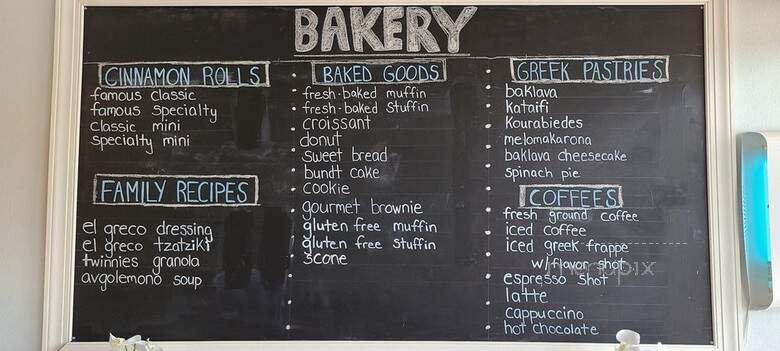 BAKERY
CINNAMON ROLLS
famous classic
famous specialty
classic mini
specialty mini
FAMILY RECIPES
el greco dressing
el greco tzatziki
twinnies granola
avgolemono soup
BAKED GOODS
fresh-baked muffin
fresh-baked stuffin
croissant
donut
sweet bread
bundt cake
cookie
gourmet brownie
gluten free muffin
gluten free stuffin
scone
GREEK PASTRIES
baklava
Kataifi
Kourabiedes
melomakarona
baklava cheesecake
spinach pie
COFFEES
fresh ground coffee
iced coffee
iced greek frappe
w/flavor shot
menupix
espresso shot
latte
cappuccino
hot chocolate